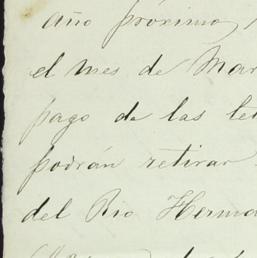 año próximo,
el mes de Mar
pago de las te
podrán retirar
del Rio Herma